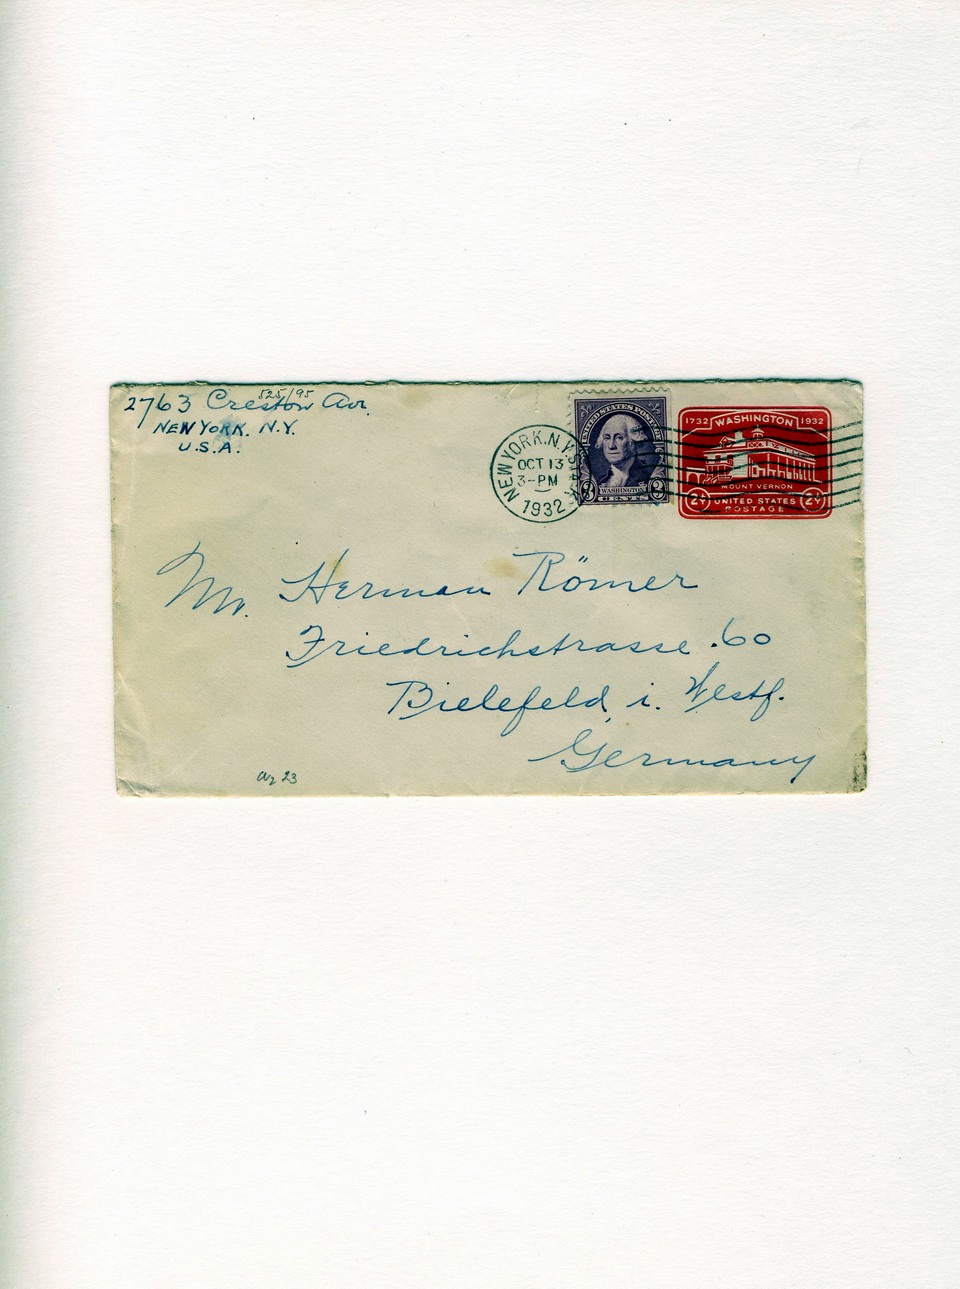 525/95
2763 Creston Av.
NEW YORK. N.Y.
U.S.A.
NEW YORK, N.Y.
OCT 13
3-PM
1932
UNITED STATES POSTAGE
WASHINGTON
3 3
CENTS
1732 WASHINGTON 1932
MOUNT VERNON
2¢ 2¢
UNITED STATES
POSTAGE
Mr. Herman Römer
Friedrichstrasse. 60
Bielefeld, i. Westf.
Germany